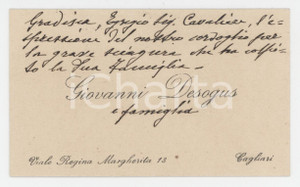 Gradisca, Egregio Sig. Cavaliere, l'e-
spressione del nostro cordoglio per
la grave sciagura che ha colpi-
to la Sua famiglia -
Giovanni Desogus
e famiglia
Viale Regina Margherita 15
Cagliari